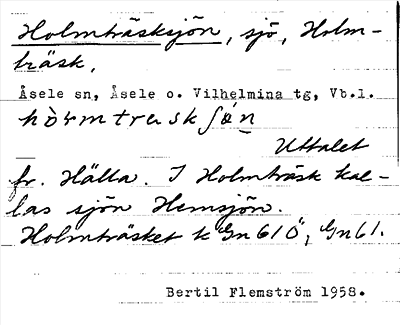 Holmträsksjön, sjö, Holm-
träsk,
Åsele sn, Åsele o. Vilhelmina tg, Vb.l.
Uttalet
fr. Hälla. I Holmträsk kal-
las sjön Hemsjön.
Holmträsket k Gn 61 Ö, Gn 61.
Bertil Flemström 1958.